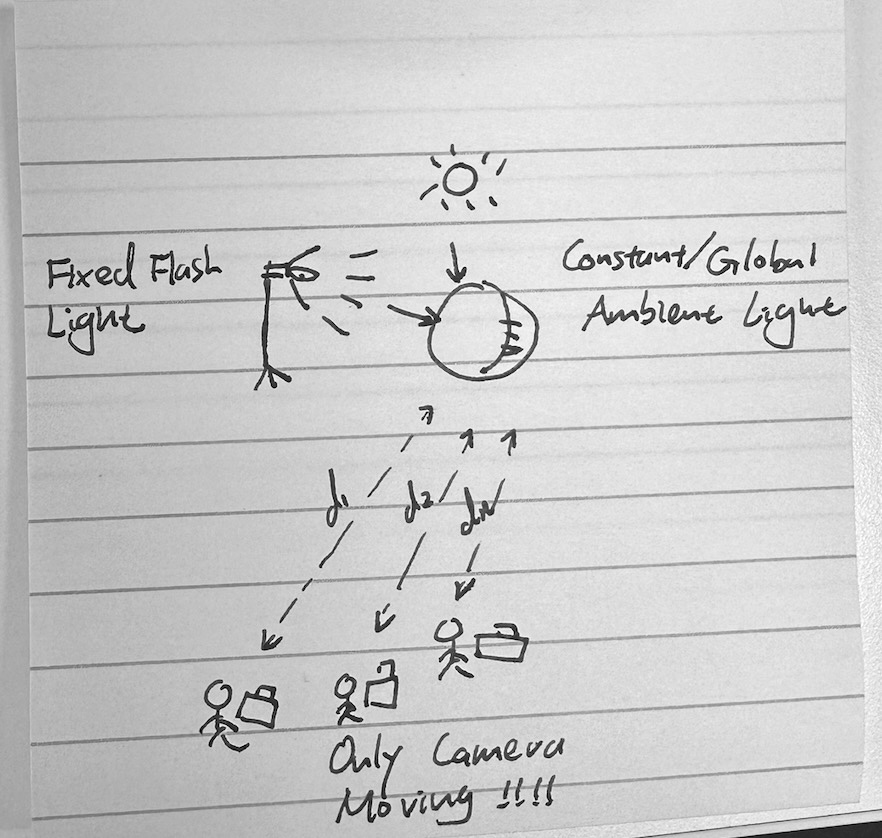 Fixed Flash
Light
Constant/Global
Ambient Light
d1
d2
dN
Only Camera
Moving !!!!